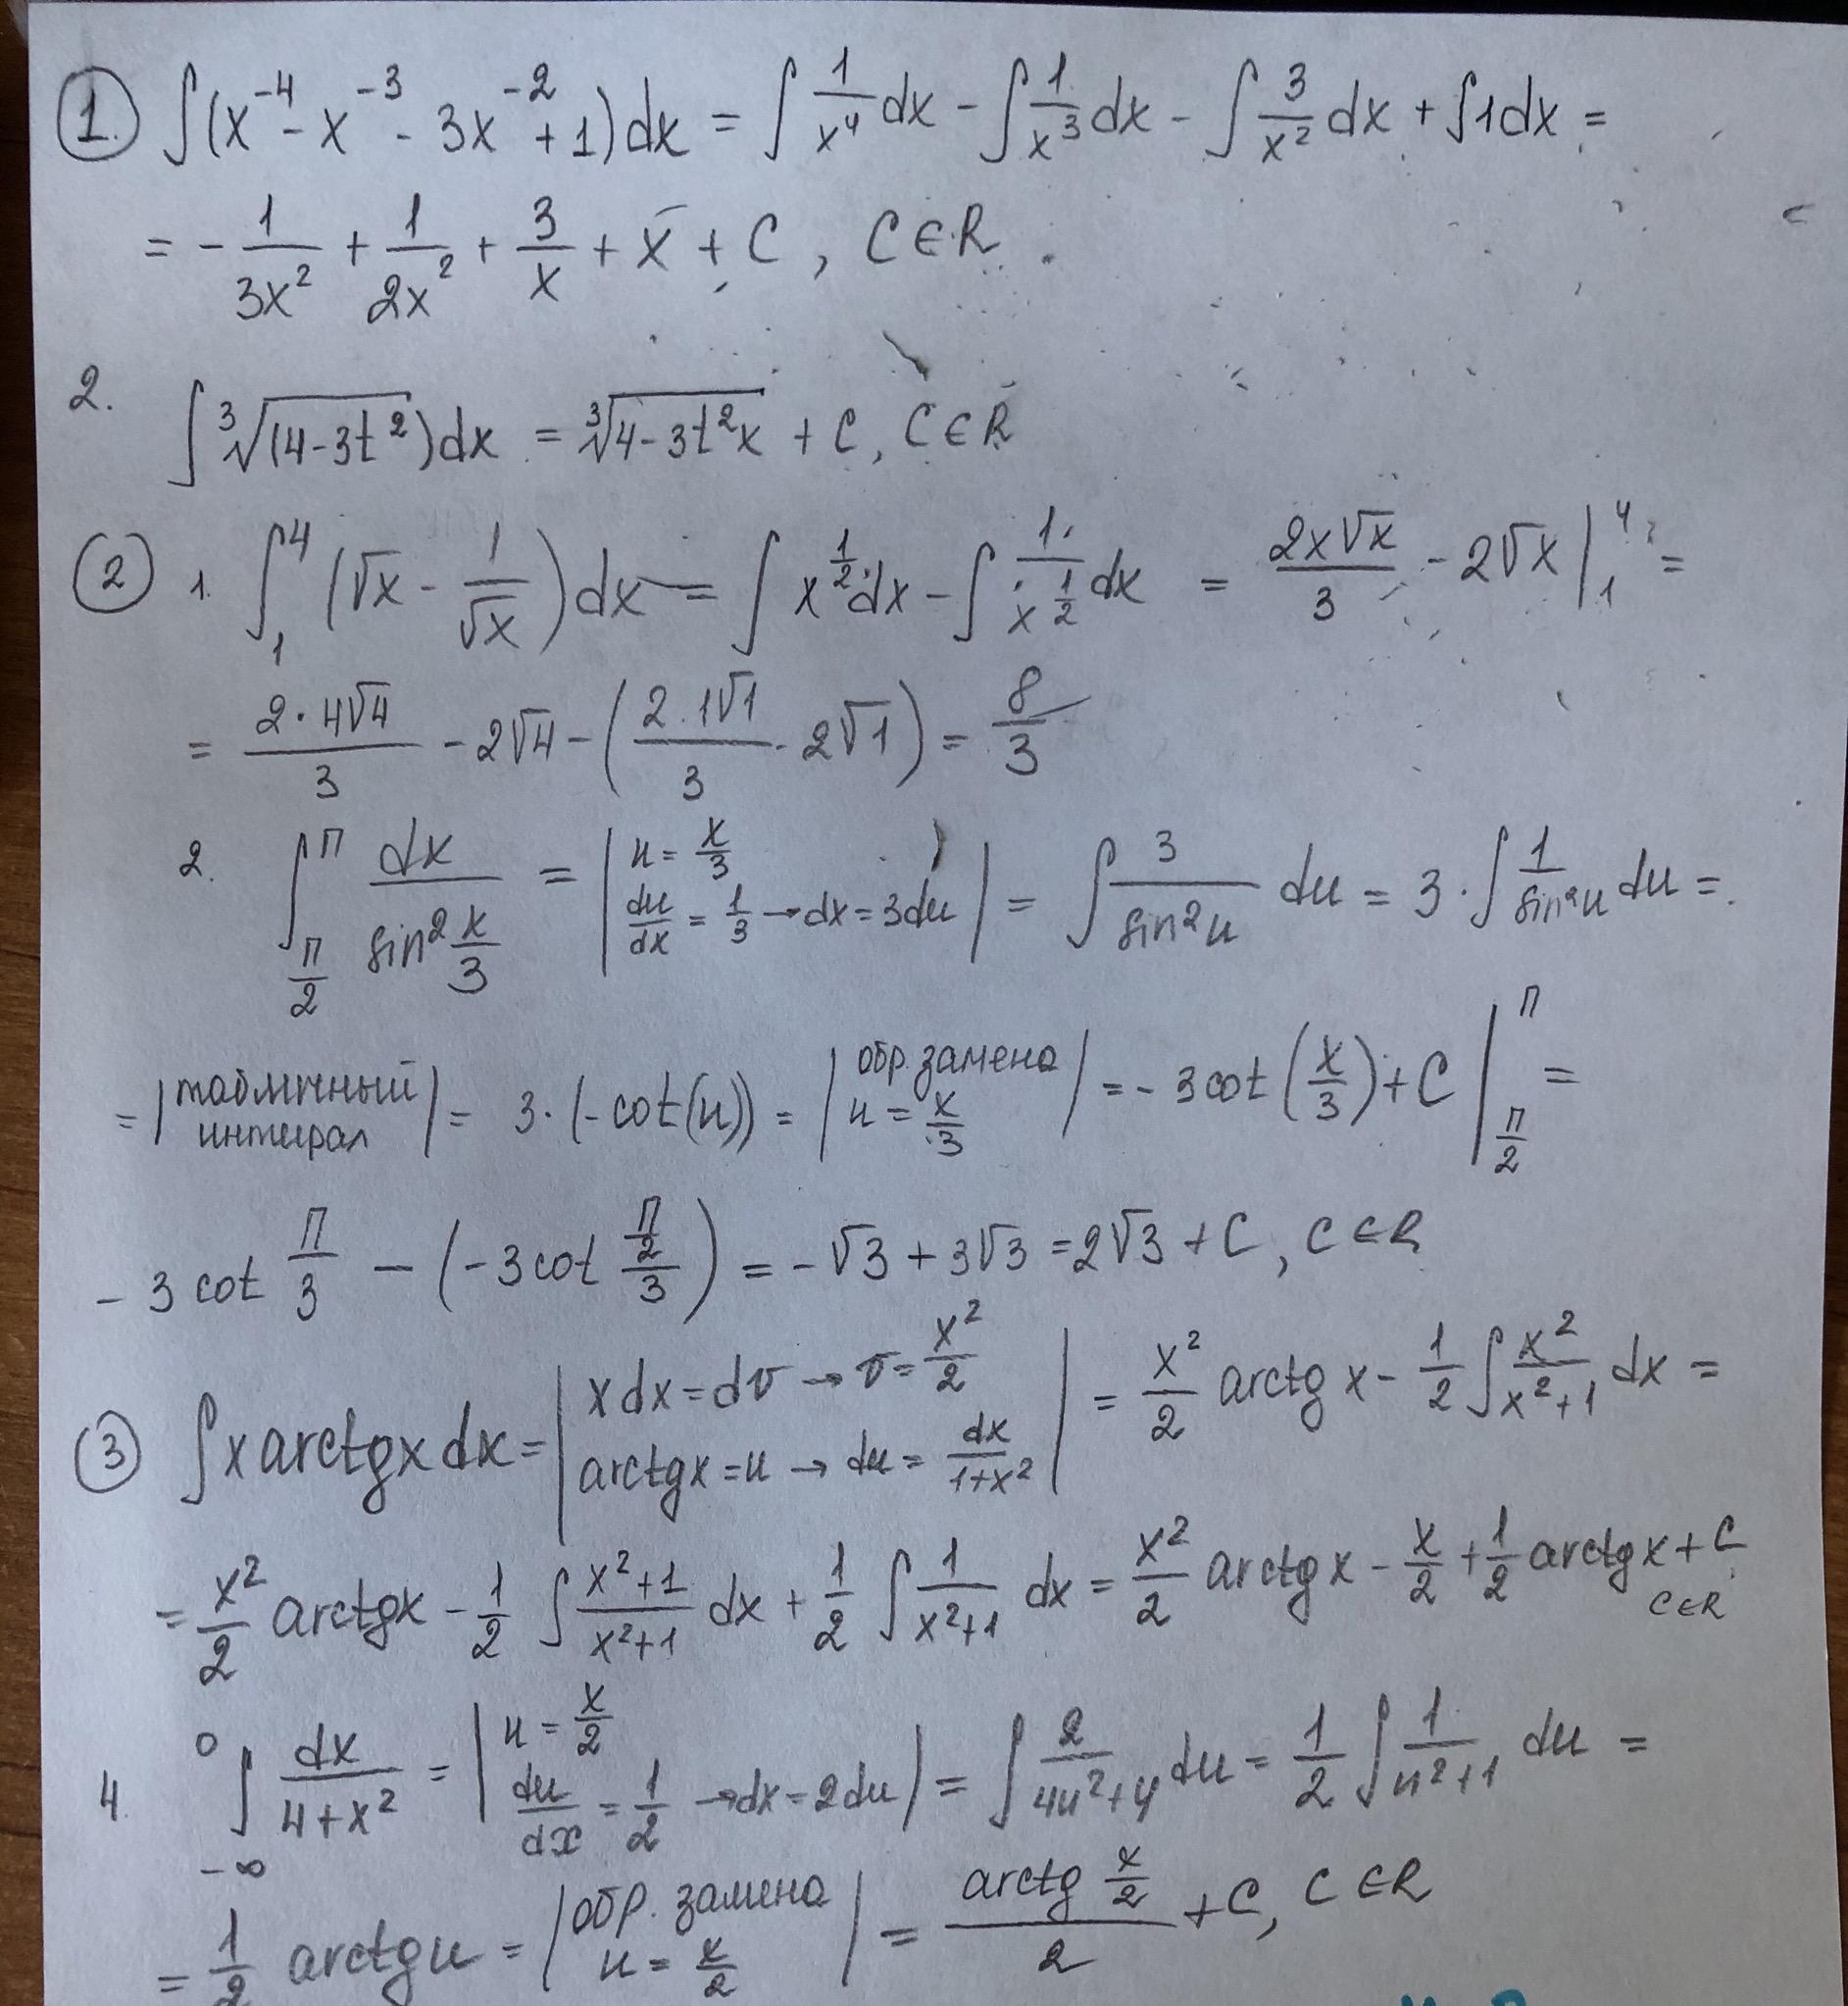 1. ∫(x⁻⁴ - x⁻³ - 3x⁻² + 1)dx = ∫ 1/x⁴ dx - ∫ 1/x³ dx - ∫ 3/x² dx + ∫1dx =
= - 1/3x² + 1/2x² + 3/x + x + C, C∈R.
2. ∫ ∛(4-3t²)dx = ∛(4-3t²x) + C, C∈R
2 1. ∫₁⁴ (√x - 1/√x)dx = ∫ x^(1/2) dx - ∫ 1/x^(1/2) dx = 2x√x/3 - 2√x |₁⁴ =
= 2·4√4/3 - 2√4 - (2·1√1/3 - 2√1) = 8/3
2. ∫_(π/2)^π dx/sin² x/3 = | u = x/3 du/dx = 1/3 → dx = 3du | = ∫ 3/sin²u du = 3·∫ 1/sin²u du =
= | табличный интеграл | = 3·(-cot(u)) = | обр. замена u = x/3 | = -3cot(x/3) + C |_(π/2)^π =
- 3cot π/3 - (-3cot (π/2)/3) = -√3 + 3√3 = 2√3 + C, C∈R
3 ∫x arctgx dx = | xdx = dv → v = x²/2 arctgx = u → du = dx/1+x² | = x²/2 arctg x - 1/2 ∫ x²/x²+1 dx =
= x²/2 arctgx - 1/2 ∫ x²+1/x²+1 dx + 1/2 ∫ 1/x²+1 dx = x²/2 arctgx - x/2 + 1/2 arctgx + C, C∈R
4. ∫_(-∞)^0 dx/4+x² = | u = x/2 du/dx = 1/2 → dx = 2du | = ∫ 2/4u²+4 du = 1/2 ∫ 1/u²+1 du =
= 1/2 arctgu = | обр. замена u = x/2 | = arctg x/2 / 2 + C, C∈R